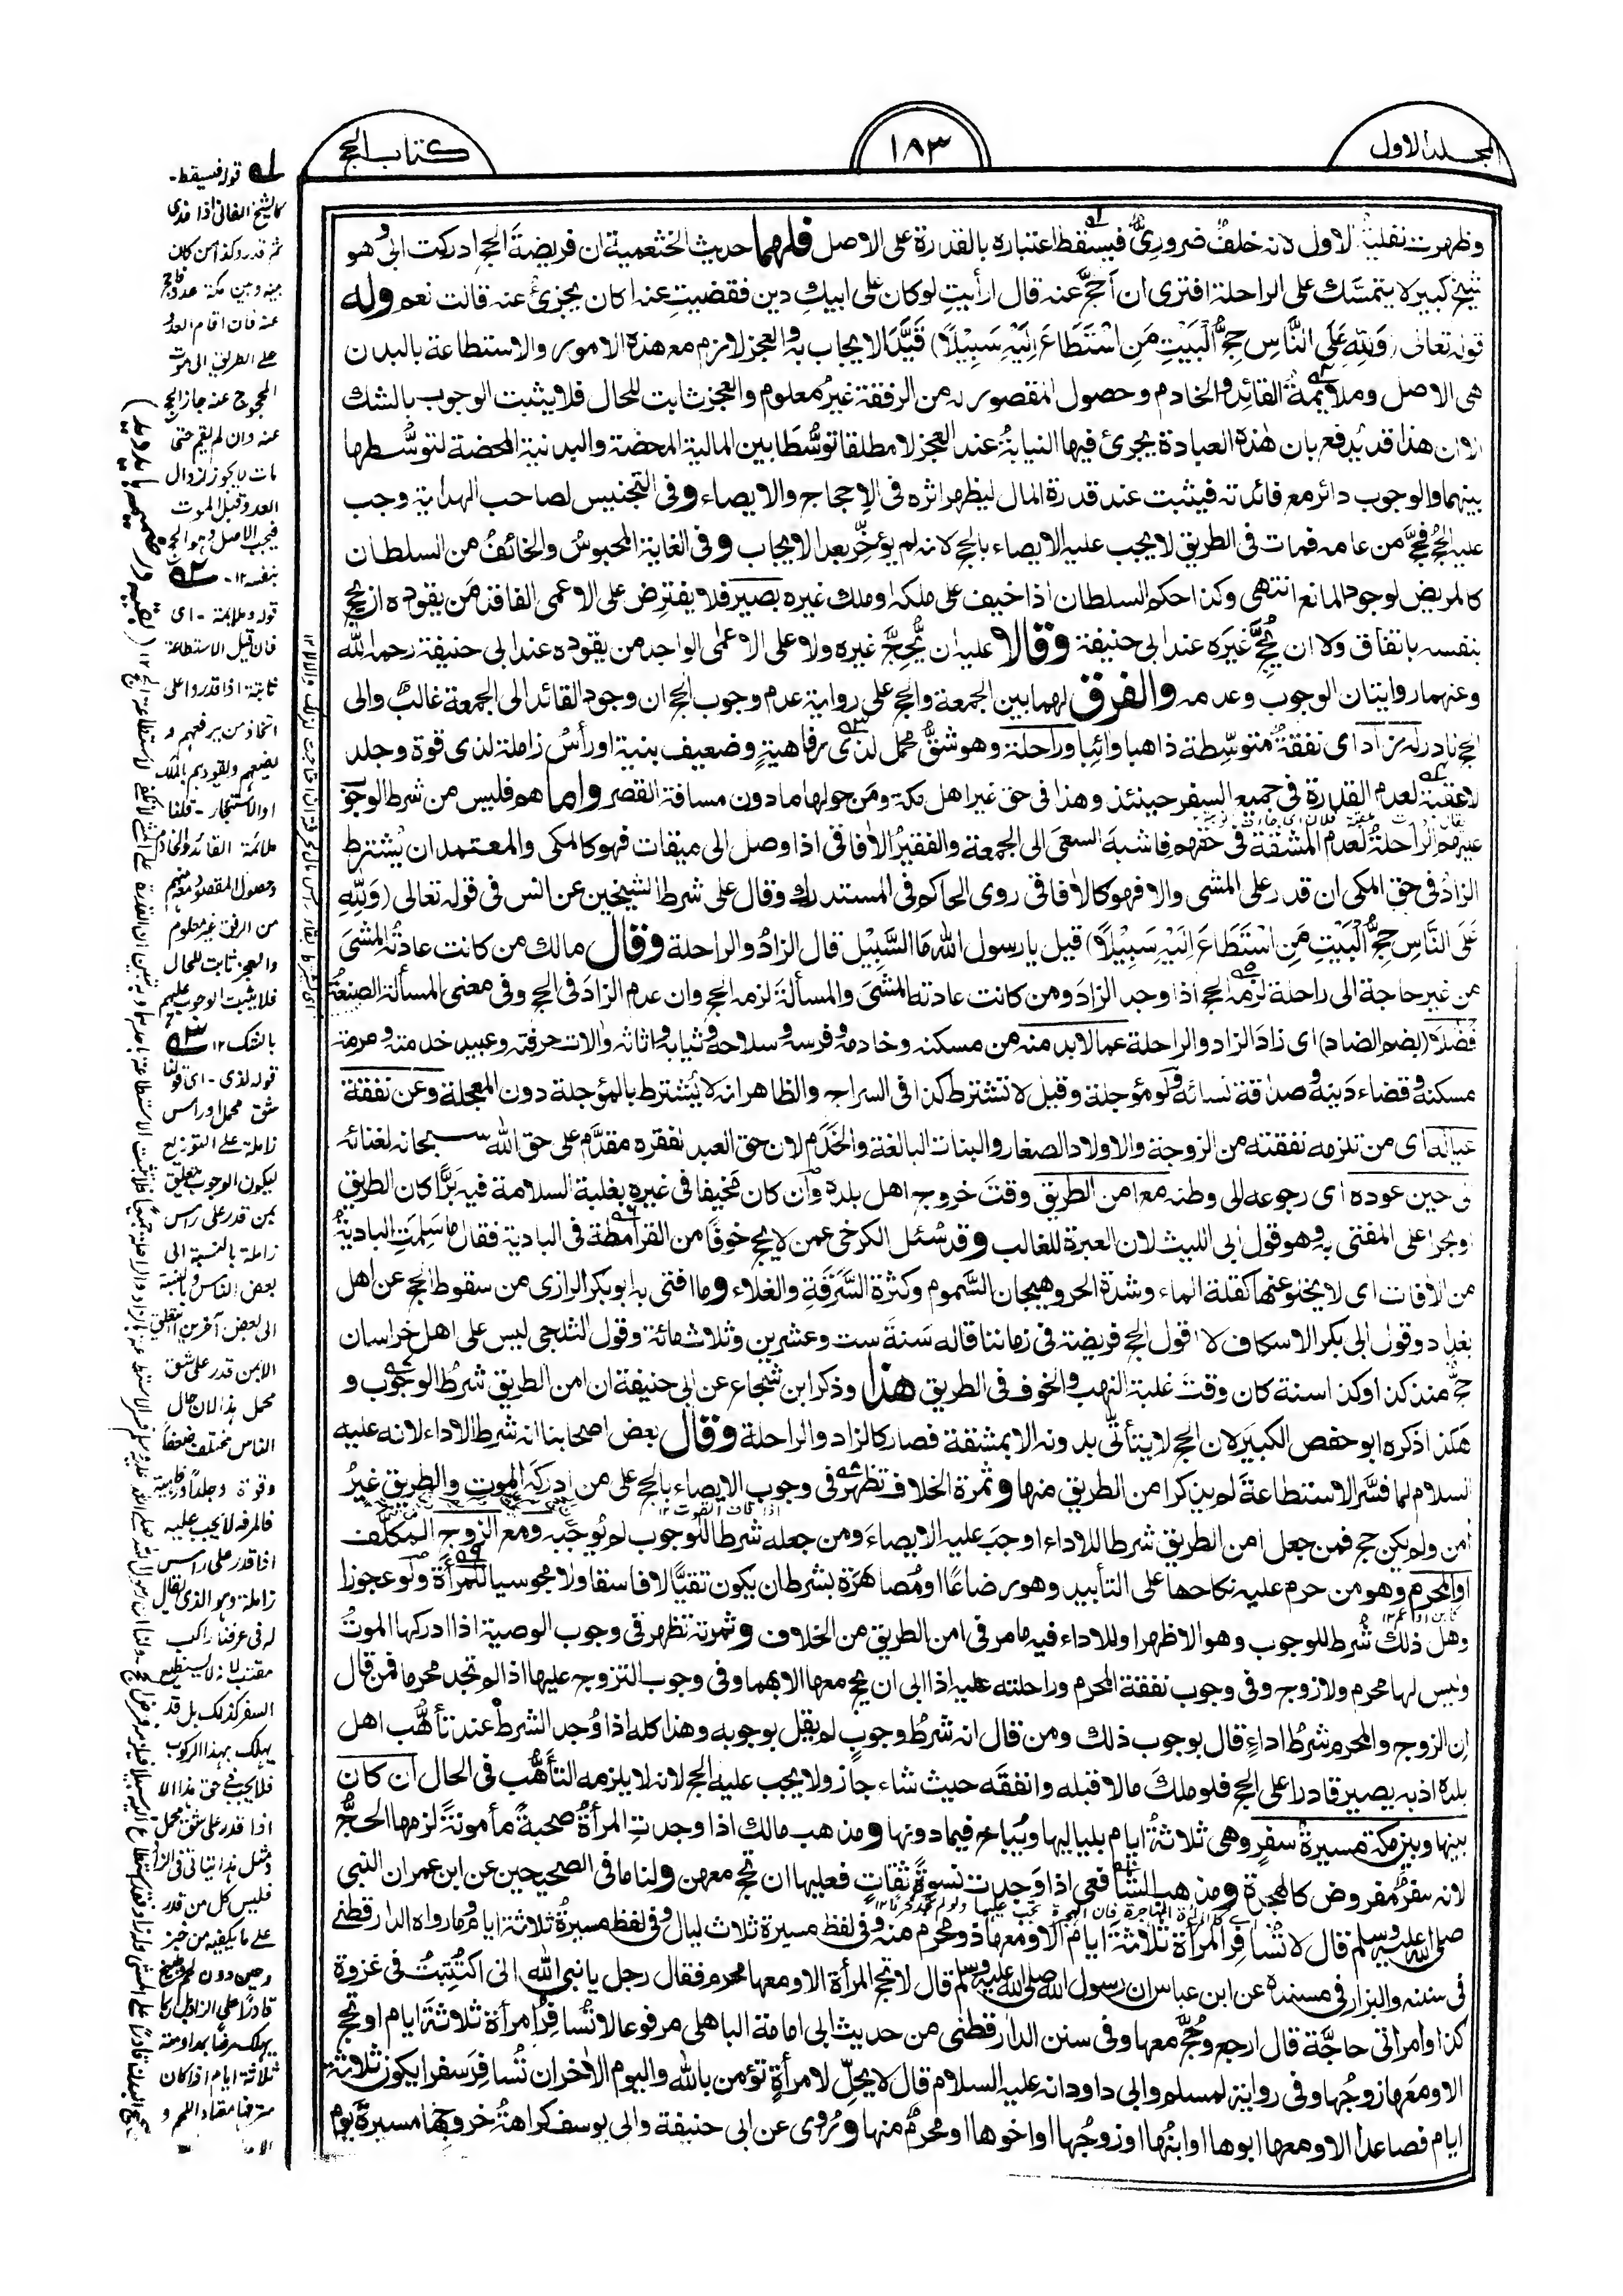 المجلد الاول
١٨٣
كتاب الحج
وظهرت نفلية الاول لانه خلف ضروري فيسقط اعتباره بالقدرة على الاصل فلهما حديث الخثعمية ان فريضة الحج ادركت ابى وهو
شيخ كبير لا يتمسّك على الراحلة افترى ان أحجَّ عنه قال ارأيتِ لو كان على ابيكِ دين فقضيتِ عنه اكان يجزئ عنه قالت نعم وله
قوله تعالى (وَلِلّٰهِ عَلَى النَّاسِ حِجُّ الْبَيْتِ مَنِ اسْتَطَاعَ اِلَيْهِ سَبِيْلًا) قَيَّدَ الايجاب به والعجز لازم مع هذه الامور والاستطاعة بالبدن
هى الاصل وملايمة القائد والخادم وحصول المقصور له من الرفقة غيرُ معلوم والعجز ثابت للحال فلا يثبت الوجوب بالشك
الا ان هذا قد يُدفع بان هٰذه العبادة يجرى فيها النيابةُ عند العجز لا مطلقا توسُّطا بين المالية المحضة والبدنية المحضة لتوسُّطها
بينهما والوجوب دائر مع فائدته فيثبت عند قدرة المال ليظهر اثره فى الاحجاج والايصاء وفى التجنيس لصاحب الهداية وجب
عليه الحجُّ فحجَّ من عامه فمات فى الطريق لا يجب عليه الايصاء بالحج لانه لم يؤخّر بعد الايجاب وفى الغاية المحبوسُ والخائفُ من السلطان
كالمريض لوجود المانع انتهى وكذا حكم السلطان اذا خيف على ملكه او ملك غيره بصير فلا يفترض على الاعمى الفاقد مَن يقوده ان يحج
بنفسه باتفاق ولا ان يُحِجَّ غيرَه عند ابى حنيفة وقالا عليه ان يُّحِجَّ غيره ولا على الاعمى الواجد من يقوده عند ابى حنيفة رحمه الله
وعنهما روايتان الوجوب وعدمه والفرق لهما بين الجمعة والحج على رواية عدم وجوب الحج ان وجود القائد الى الجمعة غالبٌ والى
الحج نادر له زاد اى نفقةٌ متوسّطة ذاهبا وائِبا وراحلة وهو شقُّ محمل لذى رفاهيةٍ وضعيف بنية او رأسُ زاملة لذى قوة وجلد
لا عقبة لعدم القدرة فى جميع السفر حينئذ وهذا فى حق غير اهل مكة ومَن حولها ما دون مسافة القصر واما هم فليس من شرط الوجو
عليهم الراحلةُ لعدم المشقة فى حقهم فاشبه السعى الى الجمعة والفقيرُ الاٰفاقى اذا وصل الى ميقات فهو كالمكى والمعتمد ان يُشترط
الزادُ فى حق المكى ان قدر على المشى والا فهو كالاٰفاقى روى الحاكم فى المستدرك وقال على شرط الشيخين عن انس فى قوله تعالى (وَلِلّٰهِ
عَلَى النَّاسِ حِجُّ الْبَيْتِ مَنِ اسْتَطَاعَ اِلَيْهِ سَبِيْلًا) قيل يا رسول الله مَا السَّبِيْل قال الزادُ والراحلة وقال مالك من كانت عادتُه المشىَ
من غير حاجة الى راحلة لزمه الحج اذا وجد الزاد ومن كانت عادته المشىَ والمسألةَ لزمه الحج وان عدم الزادَ فى الحج وفى معنى المسألة الصنعةُ
فَضُلَا (بضم الضاد) اى زادَ الزاد والراحلة عما لا بد منه من مسكنه وخادمه وفرسه وسلاحه وثيابه واثاثه واٰلات حرفته وعبيد خدمته ومرمة
مسكنه وقضاء دَينه وصداقة نسائه ولو مؤجلة وقيل لا تشترط كذا فى السراج والظاهر انه لا يُشترط بالمؤجلة دون المعجلة وعن نفقة
عياله اى من تلزمه نفقته من الزوجة والاولاد الصغار والبنات البالغة والخَدَم لان حق العبد لفقره مقدَّم على حق الله سبحانه لغنائه
الى حين عوده اى رجوعه الى وطنه مع امن الطريق وقتَ خروج اهل بلده وان كان مُخيفا فى غيره بغلبة السلامة فيه بَرًّا كان الطريق
او بحرا على المفتى به وهو قول ابى الليث لان العبرة للغالب وقد سُئل الكرخى عمن لا يحج خوفًا من القرامطة فى البادية فقال ما سَلِمَتِ البادية
من الاٰفات اى لا يخلو عنها كقلة الماء وشدة الحر وهيجان السَّموم وكثرة السَّرَقَةِ والغلاء وما افتى به ابو بكر الرازى من سقوط الحج عن اهل
بغداد وقول ابى بكر الاسكاف لا اقول الحج فريضة فى زماننا قاله سَنةَ ست وعشرين وثلاثمائة وقول الثلجى ليس على اهل خراسان
حجٌّ منذ كذا وكذا سنة كان وقتَ غلبة النهب والخوف فى الطريق هذا وذكر ابن شجاع عن ابى حنيفة ان امن الطريق شرطُ الوجوب و
هكذا ذكره ابو حفص الكبير لان الحج لا يتأتّى بدونه الا بمشقة فصار كالزاد والراحلة وقال بعض اصحابنا انه شرط الاداء لانه عليه
السلام لما فسَّر الاستطاعةَ لم يذكر امن الطريق منها وثمرة الخلاف تظهر فى وجوب الايصاء بالحج على من ادركه الموت والطريق غيرُ
اٰمن ولم يكن حج فمن جعل امن الطريق شرطا للاداء اوجبَ عليه الايصاءَ ومن جعله شرطا للوجوب لم يُوجبه ومع الزوج المكلف
او المحرم وهو من حرم عليه نكاحها على التأبيد وهو رضاعًا او مُصاهَرَة بشرط ان يكون تقيًّا لا فاسقا ولا مجوسيا للمرأة ولو عجوزا
وهل ذلك شرط للوجوب وهو الاظهر او للاداء فيه ما مر فى امن الطريق من الخلاف وثمرته تظهر فى وجوب الوصية اذا ادركها الموتُ
وليس لها محرم ولا زوج وفى وجوب نفقة المحرم وراحلته عليها اذا ابى ان يحج معها الا بهما وفى وجوب التزوج عليها اذا لم تجد محرما فمن قال
اِن الزوج والمحرم شرطُ اداءٍ قال بوجوب ذلك ومن قال انه شرطُ وجوبٍ لم يقل بوجوبه وهذا كله اذا وُجد الشرط عند تأهُّب اهل
بلده اذ به يصير قادرا على الحج فلو ملكَ مالا قبله وانفقَه حيث شاء جاز ولا يجب عليه الحج لانه لا يلزمه التأهُّب فى الحال ان كان
بينها وبين مكة مسيرةُ سفرٍ وهى ثلاثةُ ايام بلياليها ويُباح فيما دونها ومذهب مالك اذا وجدتِ المرأةُ صحبةً مأمونةً لزمها الحجُّ
لانه سفرٌ مفروض كالهجرة ومذهب الشافعى اذا وَجدت نسوةً ثقاتٍ فعليها ان تحج معهن ولنا ما فى الصحيحين عن ابن عمر ان النبى
صلى الله عليه وسلم قال لا تُسافر المرأة ثلاثة ايام الا ومعها ذو محرم منه وفى لفظ مسيرة ثلاث ليال وفى لفظ مسيرةُ ثلاثة ايام وما رواه الدارقطنى
فى سننه والبزار فى مسنده عن ابن عباس ان رسول الله صلى الله عليه وسلم قال لا تحج المرأة الا ومعها محرم فقال رجل يا نبى الله انى اكتُتِبتُ فى غزوة
كذا وامرأتى حاجَّة قال ارجع وحُجَّ معها وفى سنن الدارقطنى من حديث ابى امامة الباهلى مرفوعا لا تُسافِرُ امرأة ثلاثةَ ايام او تحج
الا ومعها زوجُها وفى رواية لمسلم وابى داود انه عليه السلام قال لا يحِلّ لامرأةٍ تؤمن بالله واليوم الاٰخر ان تُسافِرَ سفرا يكون ثلاثة
ايام فصاعدا الا ومعها ابوها او ابنُها او زوجُها او اخوها او محرمٌ منها ويُروى عن ابى حنيفة وابى يوسف كراهةُ خروجِها مسيرةَ يوم
له قوله فيسقط-
كالشيخ الفانى اذا فدى
ثم قدر وكذا من كان
بينه وبين مكة عدو فاحج
عنه فان اقام العدو
على الطريق الى موت
المحجوج عنه جاز الحج
عنه وان لم يقم حتى
مات لا يجوز لزوال
العدو قبل الموت
فيجب الاصل وهو الحج
بنفسه ١٢-
قوله وملايمة - اى
فان قيل الاستطاعة
ثابتة اذا قدروا على
اتخاذ من يرفعهم و
يضعهم ويقودهم بالملك
او الاستئجار - قلنا
ملائمة القائد والخادم
وحصول المقصود معهم
من الرفق غير معلوم
والعجز ثابت للحال
فلا يثبت الوجوب عليهم
بالشك ١٢
قوله لذى - اى قولنا
شق محمل او راس
زاملة على التوزيع
ليكون الوجوب يتعلق
بمن قدر على راس
زاملة بالنسبة الى
بعض الناس وبالنسبة
الى بعض آخرين لا يتعلق
الا بمن قدر على شق
محمل هذا لان حال
الناس مختلف ضعفا
وقوة وجلدا ورفاهية
فالمرفه لا يجب عليه
اذا قدر على راس
زاملة وهو الذى يقال
له فى عرفنا راكب
مقتب لانه لا يستطيع
السفر كذلك بل قد
يهلك بهذا الركوب
فلا يجب فى حق هذا الا
اذا قدر على شق محمل
ومثل هذا يتأتى فى الزاد
فليس كل من قدر
على ما يكفيه من خبز
وجبن دون لحم وطبيخ
قادرا على الزاد بل ربما
يهلك مرضا بمداومته
ثلاثة ايام اذا كان
مترفها معتاد اللحم و